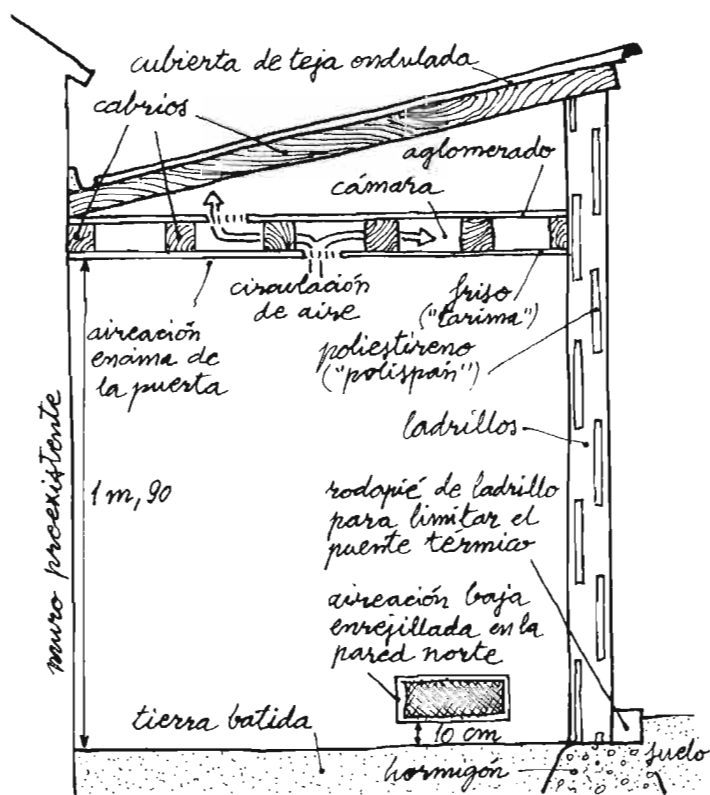 cubierta de teja ondulada
cabrios
aglomerado
cámara
circulación
de aire
friso
("tarima")
aireación
encima de
la puerta
poliestireno
("polispán")
ladrillos
muro proexistente
1 m, 90
rodapié de ladrillo
para limitar el
puente térmico
aireación baja
enrejillada en la
pared norte
tierra batida
10 cm
hormigón
suelo